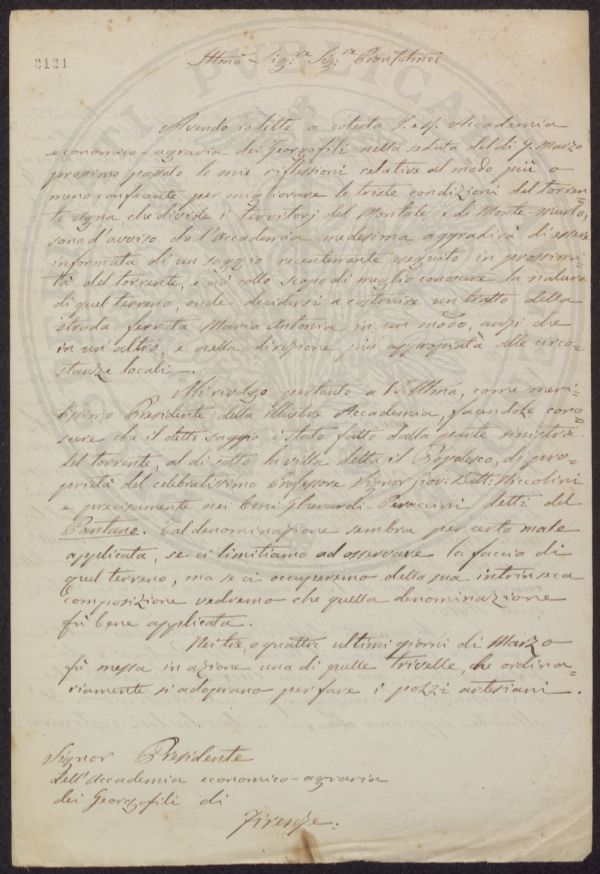 2121
Illmo Sig.re Sig.re Pron Colmo
Avendo io letto a codesta I. e R. Accademia
economico-agraria dei Georgofili nella seduta del dì 9. Marzo
prossimo passato le mie riflessioni relative al modo più o
meno confacente per migliorare le triste condizioni del torren-
te Agna, che divide i territorj del Montale e di Monte-murlo,
sono d'avviso che l'Accademia medesima aggradirà di essere
informata di un saggio recentemente eseguito in prossimi-
tà del torrente, e ciò collo scopo di meglio conoscere la natura
di quel terreno, onde decidersi a costruire un tratto della
strada ferrata Maria Antonia in un modo, anzi che
in un altro, e nella direzione più appropriata alle circo-
stanze locali.—
Mi rivolgo pertanto a V.S. Illma, come meri-
tissimo Presidente della illustre Accademia, facendole cono-
scere che il detto saggio è stato fatto dalla parte sinistra
del torrente, al di sotto la villa detta il Popolesco, di pro-
prietà del celebratissimo Professore Signor Giov: Batt: Niccolini
e precisamente nei beni Gherardi-Peraccini detti del
Pantano. Tal denominazione sembra per certo male
applicata, se ci limitiamo ad osservare la faccia di
quel terreno, ma se ci occuperemo della sua intrinseca
composizione vedremo che quella denominazione
fù bene applicata.
Nei tre, o quattro ultimi giorni di Marzo
fù messa in azione una di quelle trivelle, che ordina-
riamente si adoprano per fare i pozzi artesiani.
Signor Presidente
dell'Accademia economico-agraria
dei Georgofili di
Firenze.